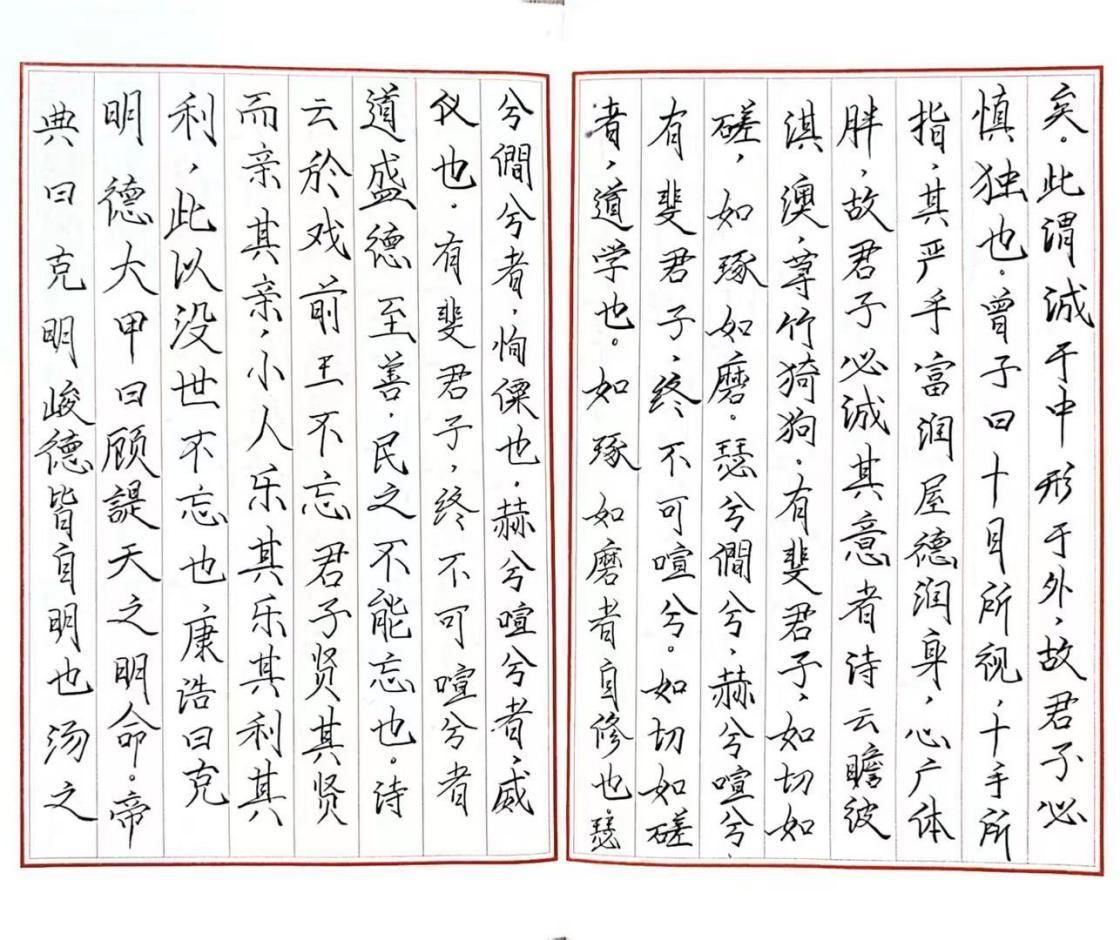 矣。此谓诚于中形于外，故君子必
慎独也。曾子曰十目所视，十手所
指，其严乎富润屋德润身，心广体
胖，故君子必诚其意者诗云瞻彼
淇澳，菉竹猗猗，有斐君子，如切如
磋，如琢如磨。瑟兮僩兮，赫兮喧兮，
有斐君子，终不可喧兮。如切如磋
者，道学也。如琢如磨者自修也瑟
兮僩兮者，恂慄也，赫兮喧兮者，威
仪也，有斐君子，终不可喧兮者
道盛德至善，民之不能忘也。诗
云於戏前王不忘君子贤其贤
而亲其亲，小人乐其乐其利其
利，此以没世不忘也康浩曰克
明德大甲曰顾諟天之明命。帝
典曰克明峻德皆自明也汤之